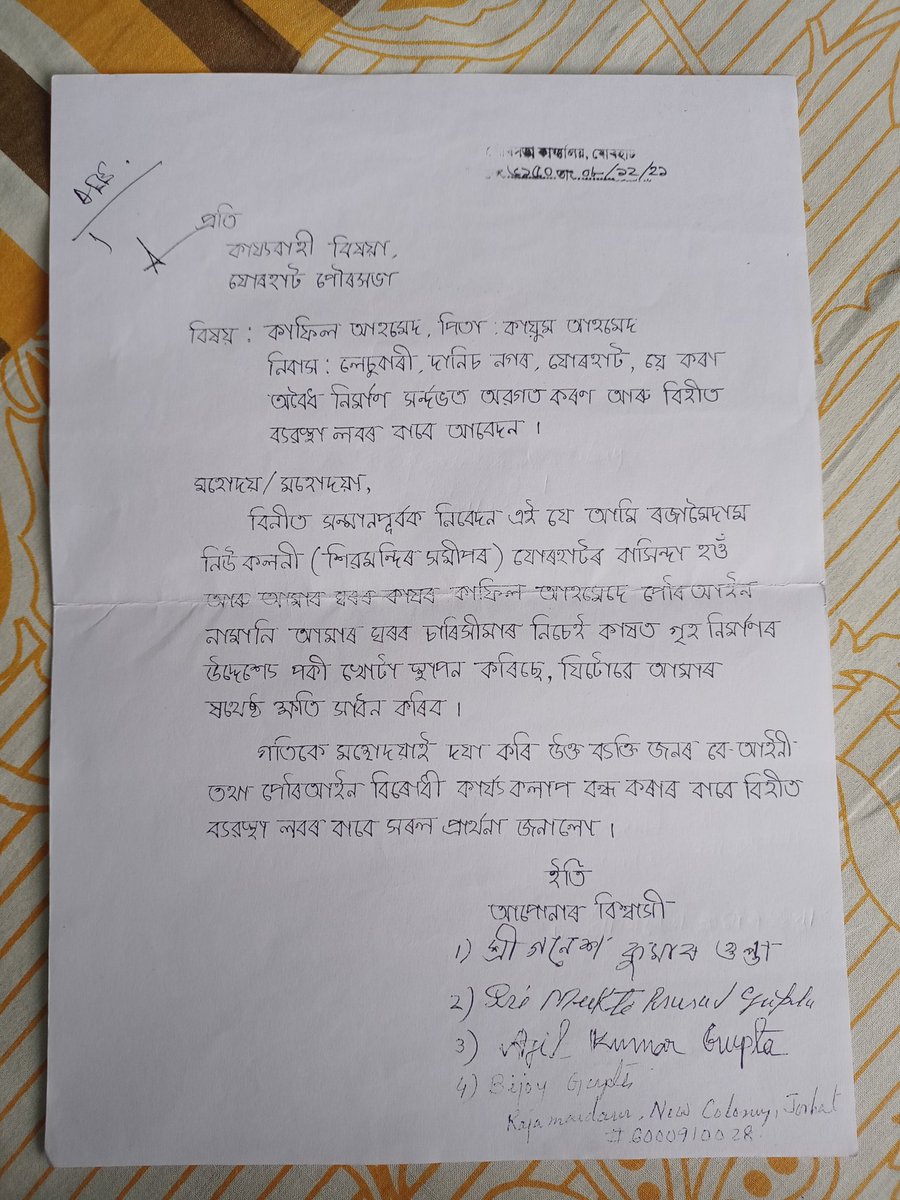 কাৰ্য্যালয়, যোৰহাট
তাং ০৮/১২/২১
প্ৰতি
কাৰ্য্যবাহী বিষয়া,
যোৰহাট পৌৰসভা
বিষয় : কাফিল আহমেদ, পিতা : কায়ুম আহমেদ
নিবাস : লেচুবাৰী, দানিচ নগৰ, যোৰহাট, য়ে কৰা
অবৈধ নিৰ্মাণ সৰ্ন্দভত অৱগত কৰণ আৰু বিহীত
ব্যৱস্থা লবৰ বাবে আবেদন ।
মহোদয়/মহোদয়া,
বিনীত সন্মানপূৰ্বক নিবেদন এই যে আমি ৰজামৈদাম
নিউ কলনী (শিৱমন্দিৰ সমীপৰ) যোৰহাটৰ বাসিন্দা হওঁ
আৰু আমাৰ ঘৰৰ কাষৰ কাফিল আহমেদে পৌৰ আইন
নামানি আমাৰ ঘৰৰ চাৰিসীমাৰ নিচেই কাষত গৃহ নিৰ্মাণৰ
উদ্দেশ্যে পকী খোটা স্থাপন কৰিছে, যিটোৱে আমাৰ
ক্ষতি সাধন কৰিব ।
গতিকে মহোদয়াই দয়া কৰি উক্ত ব্যক্তি জনৰ বে-আইনী
তথা পৌৰআইন বিৰোধী কাৰ্য্যকলাপ বন্ধ কৰাৰ বাবে বিহীত
ব্যৱস্থা লবৰ বাবে সৰল প্ৰাৰ্থনা জনালো ।
ইতি
আপোনাৰ বিশ্বাসী
1) শ্ৰী গনেশ কুমাৰ গুপ্তা
2) Sri Mukta Prasad Gupta
3) Ajit Kumar Gupta
4) Bijoy Gupta
Rajamaidam, New Colony, Jorhat
# 6000910028